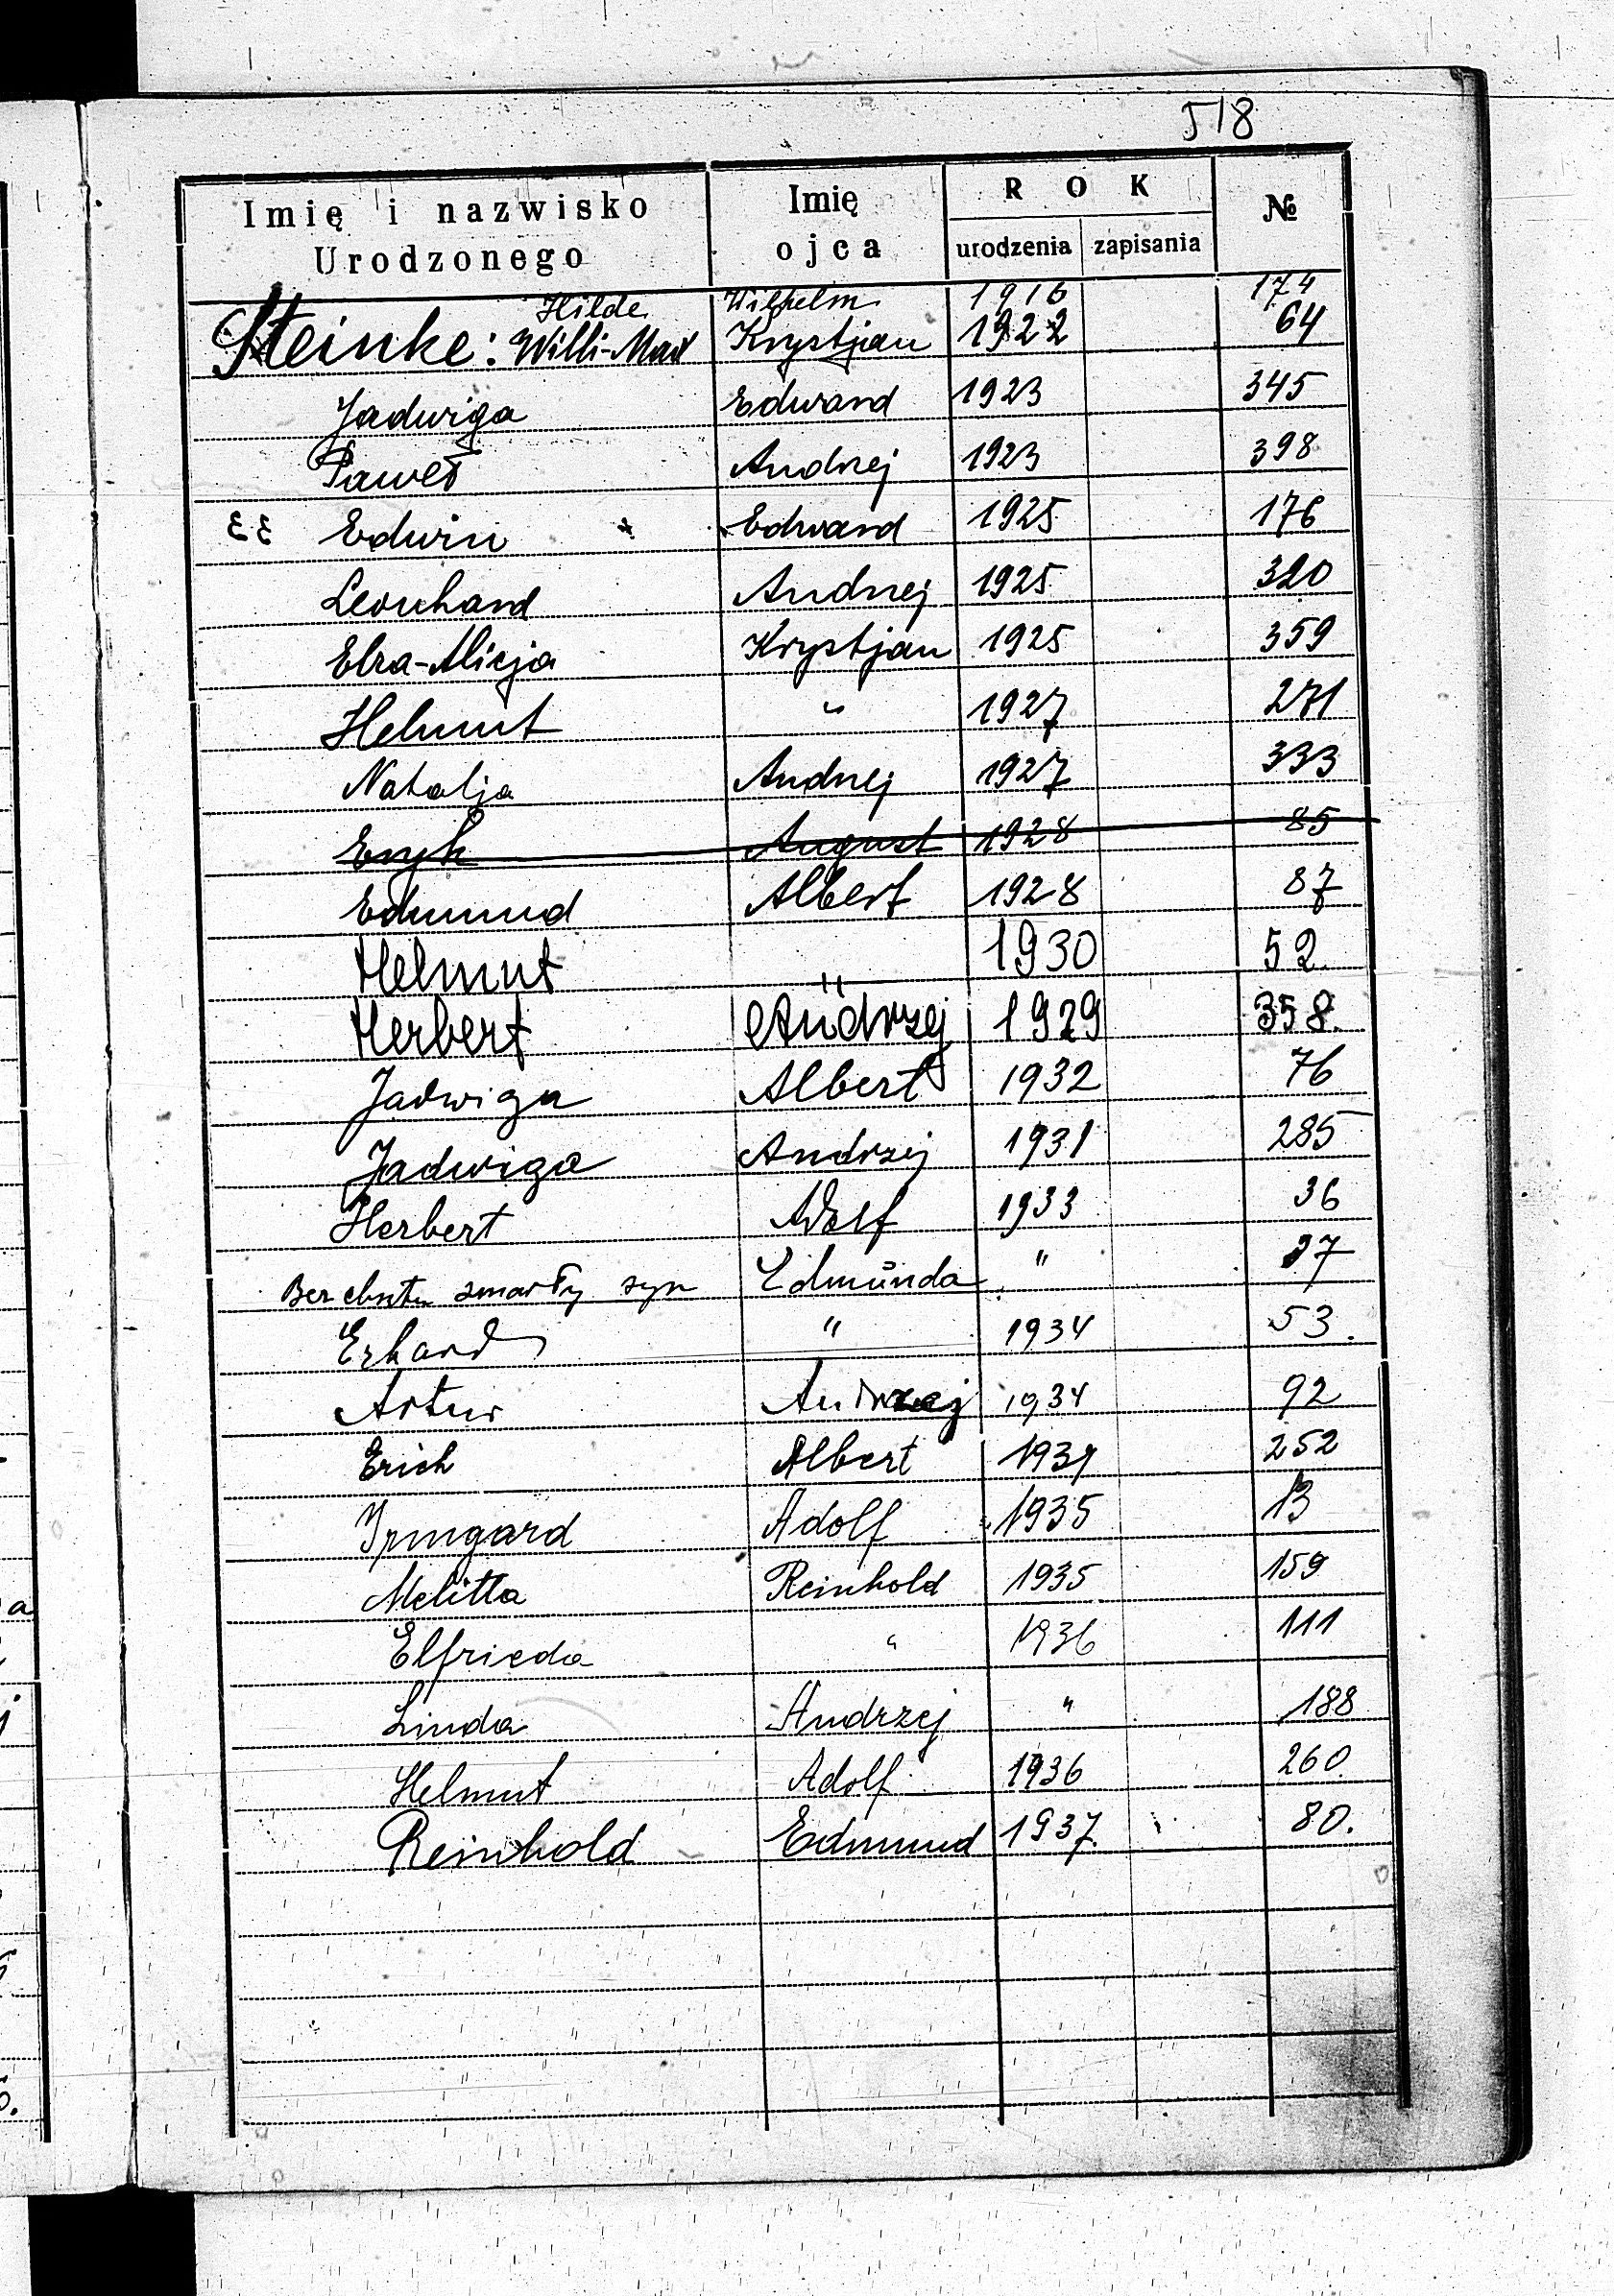 518
Imię i nazwisko Urodzonego Imię ojca ROK urodzenia zapisania №
Hilde Wilhelm 1916 174
Steinke: Willi-Max Krystjan 1922 64
Jadwiga Edward 1923 345
Paweł Andrzej 1923 398
Edwin Edward 1925 176
Leonhard Andrzej 1925 320
Elza-Alicja Krystjan 1925 359
Helmut " 1927 271
Natalja Andrzej 1927 333
Eryk August 1928 85
Edmund Albert 1928 87
Helmut " 1930 52.
Herbert Andrzej 1929 358.
Jadwiga Albert 1932 76
Jadwiga Andrzej 1931 285
Herbert Adolf 1933 36
Bez chrztu zmarły syn Edmunda " 37
Erhard " 1934 53.
Artur Andrzej 1934 92
Erich Albert 1934 252
Irmgard Adolf 1935 13
Melitta Reinhold 1935 159
Elfrieda " 1936 111
Linda Andrzej " 188
Helmut Adolf 1936 260.
Reinhold Edmund 1937. 80.